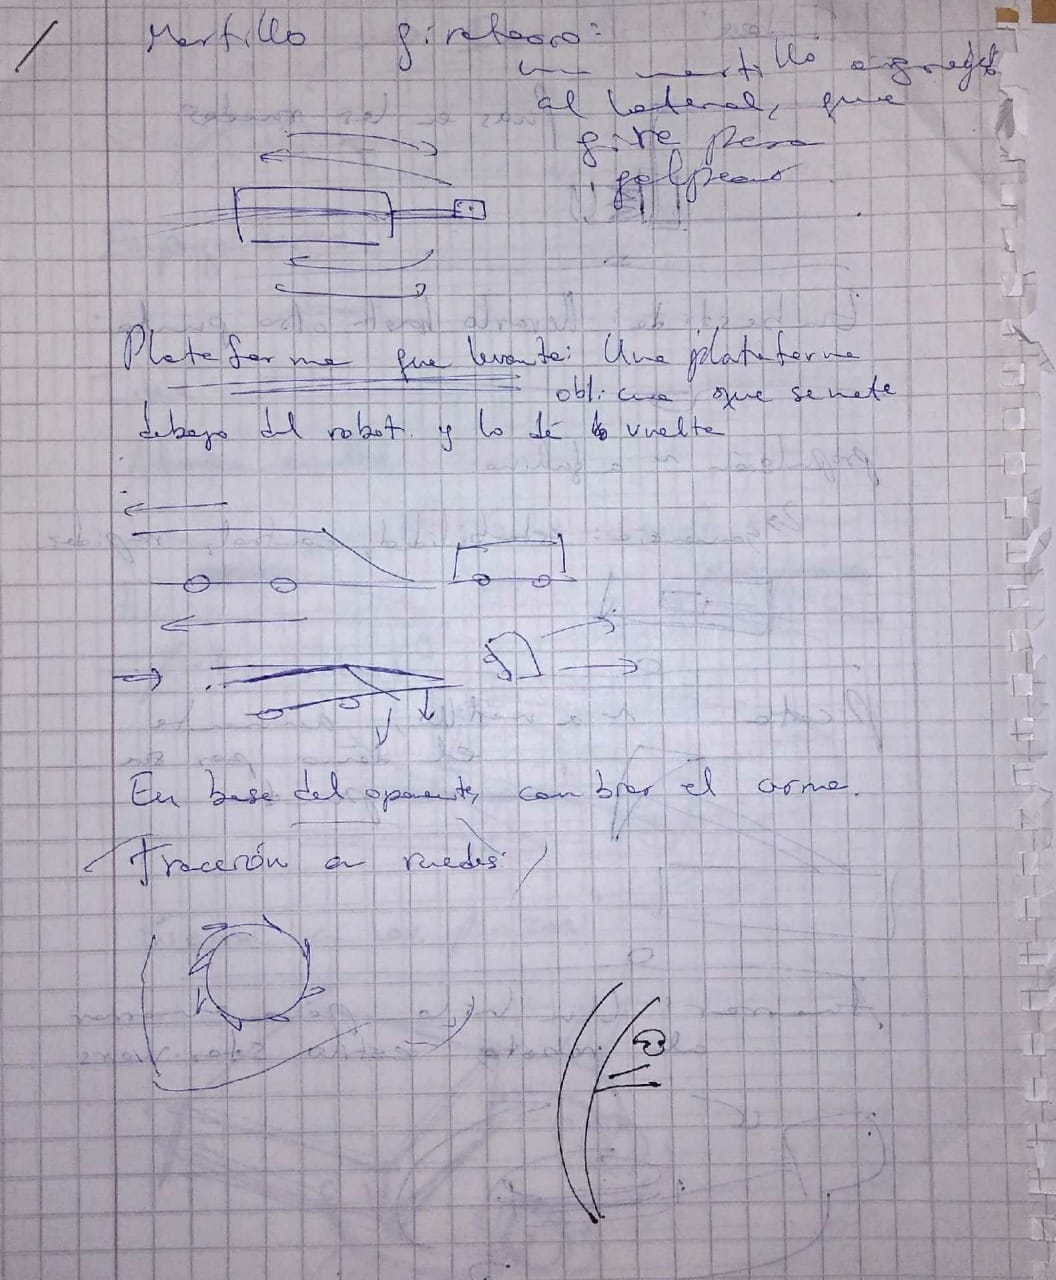 Martillo giratorio:
un martillo agregado
al lateral, que
gire para
golpear
Plataforma que levante: Una plataforma
oblicua que se mete
debajo del robot y lo dé vuelta
En base del oponente, cambiar el arma.
Tracción en ruedas: